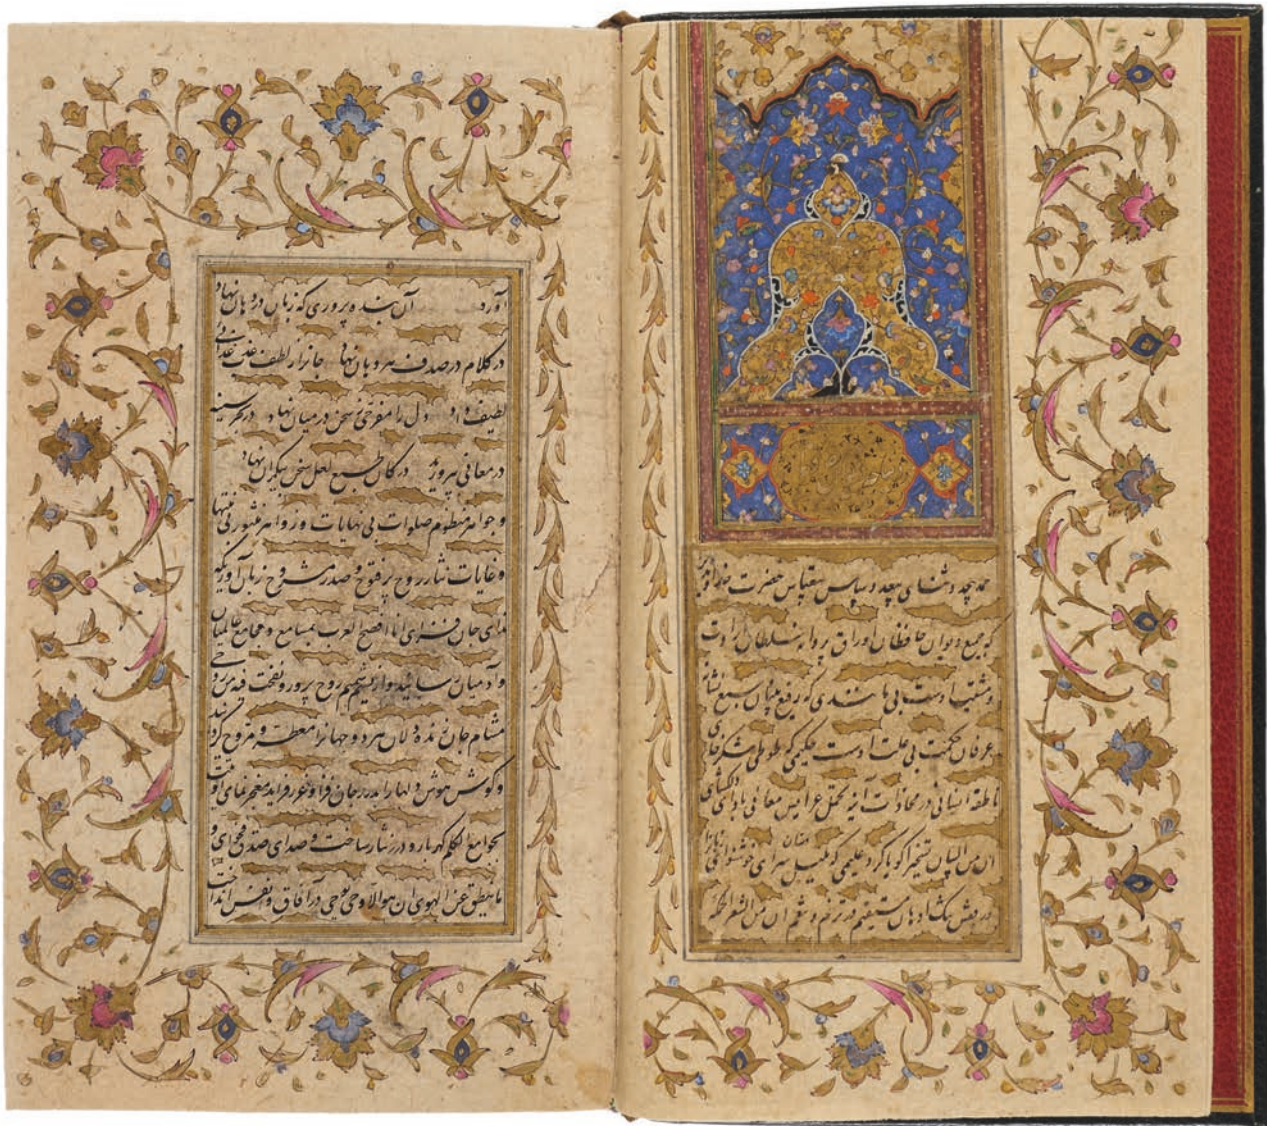 حمد بیحد و ثنای بیعد و سپاس بیقیاس حضرت خداوندی
که جمیع دیوان حافظان ارزاق پروانه سلطان ارادت
و مشیت اوست بی مانندی که رفع بنیان سبع
عرفان حکمت بی علت اوست حکیمی که طوطی شکرخای
ناطقه انسانی در محاذات آینه تحمل عرایس معانی بادای دلگشای
ان من البیان لسحرا گویا کرد علیمی که بلبل دستان سرای خوشنوای زبانرا
در قفس تنگنای دهان مستقیم در ترنم و تنغم ان من الشعر لحکمة
آورد آن بنده پروری که زبان در دهان نهاد
در کلام در صدف هر دهان نهاد جانرا ز لطف
لطیف داد دل را مفرحی ز سخن در میان نهاد در هر سینه
در معانی بپرورید در کان طبع لعل سخن بیکران نهاد
و جواهر منظوم صلوات بی نهایات و زواهر منثور بی منتها
و غایات نثار روح پر فتوح و صدر مشروح زبان آوری که
ندای جان فزای انا افصح العرب بمسامع و مجامع عالمیان
و آدمیان رسانید و از شمیم روح پرور و نفخت فیه من روحی
مشام جان زنده دلان هر دو جهانرا معطر و مروح گردانید
و گوش هوش دلها را بدرر جان فزا و غرر فراید معجز نمای اوتیت
بجوامع الکلم گهربار و درر نثار ساخت و صدای صدق فحوای و
ما ینطق عن الهوی ان هو الا وحی یوحی در آفاق و انفس انداخت